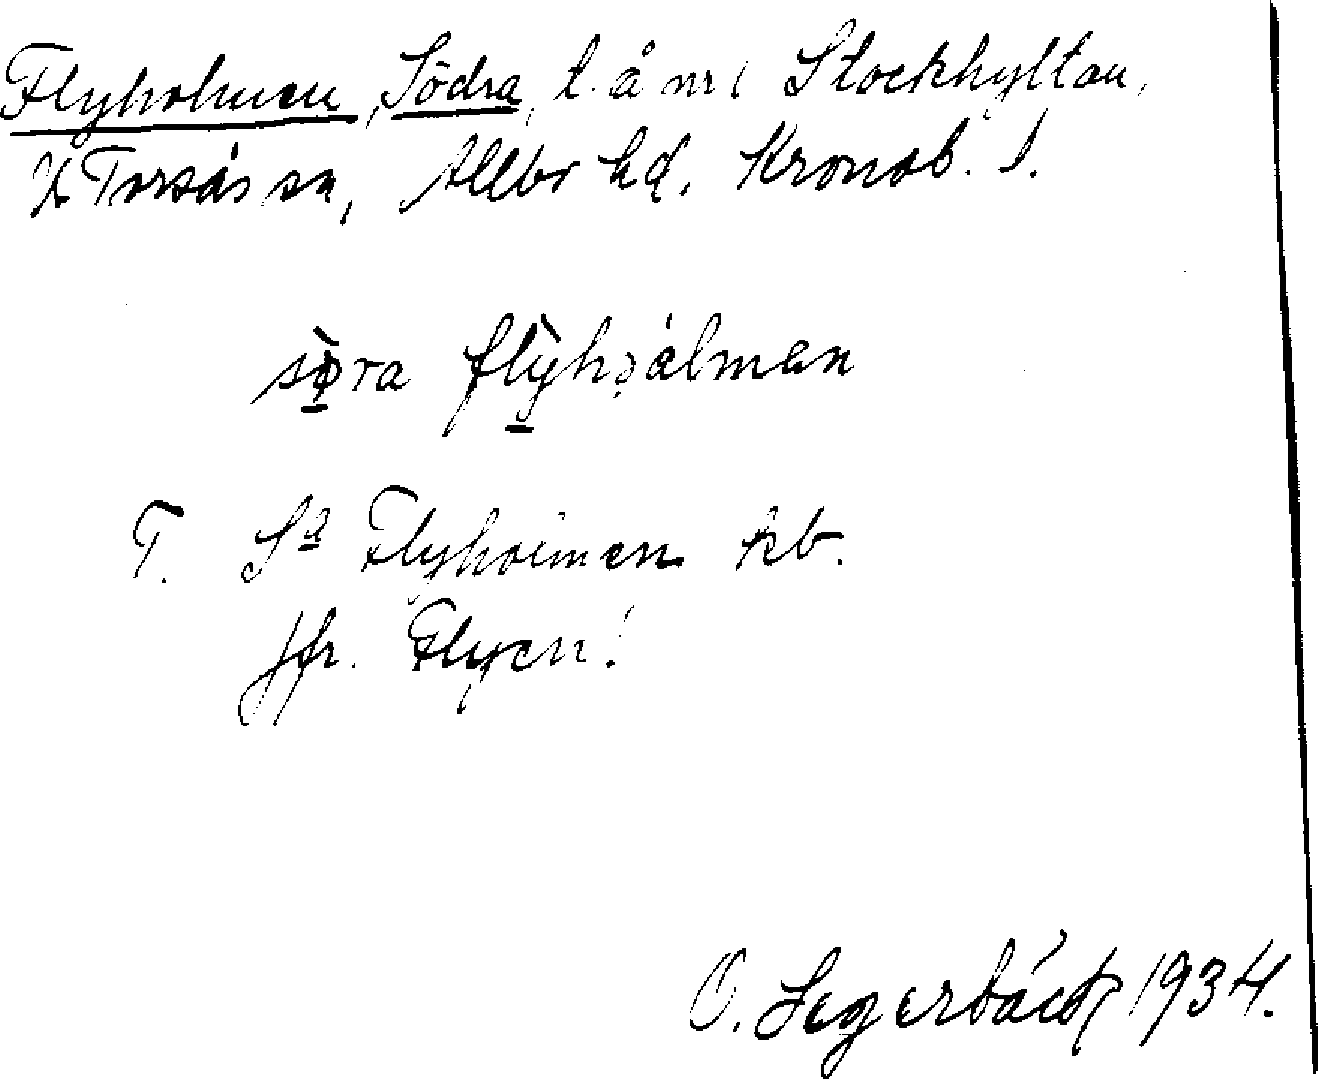 Flyholmen, Södra, l. å nr 1 Stockhyltan,
V Torsås sn, Allbo hd. Kronob. l.
sø̀ra flỳhǫalmen
T. Sa Flyholmen kb.
Jfr. Flyen!
O. Segerbäck 1934.